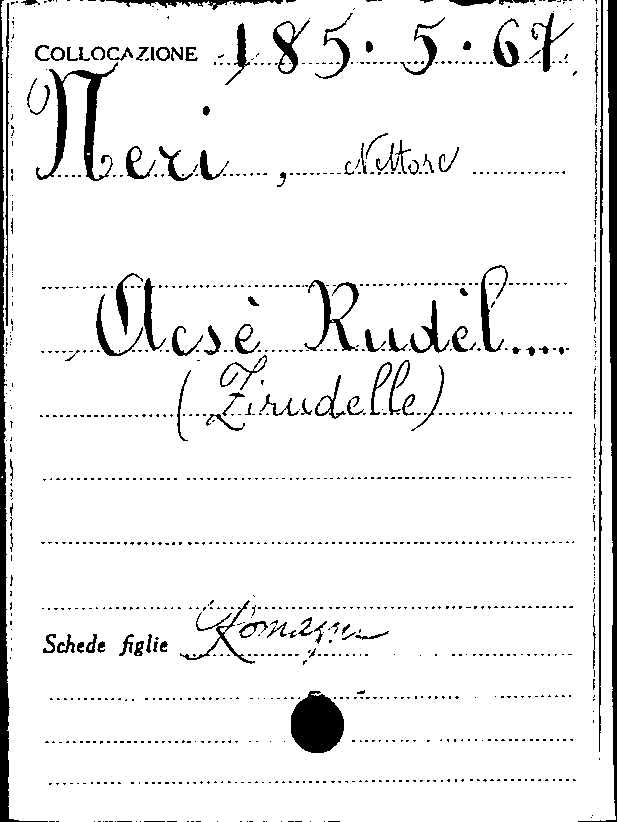 COLLOCAZIONE 185.5.67
Neri, Nettore
Acsè Rudèl....
(Zirudelle)
Schede figlie Romagna